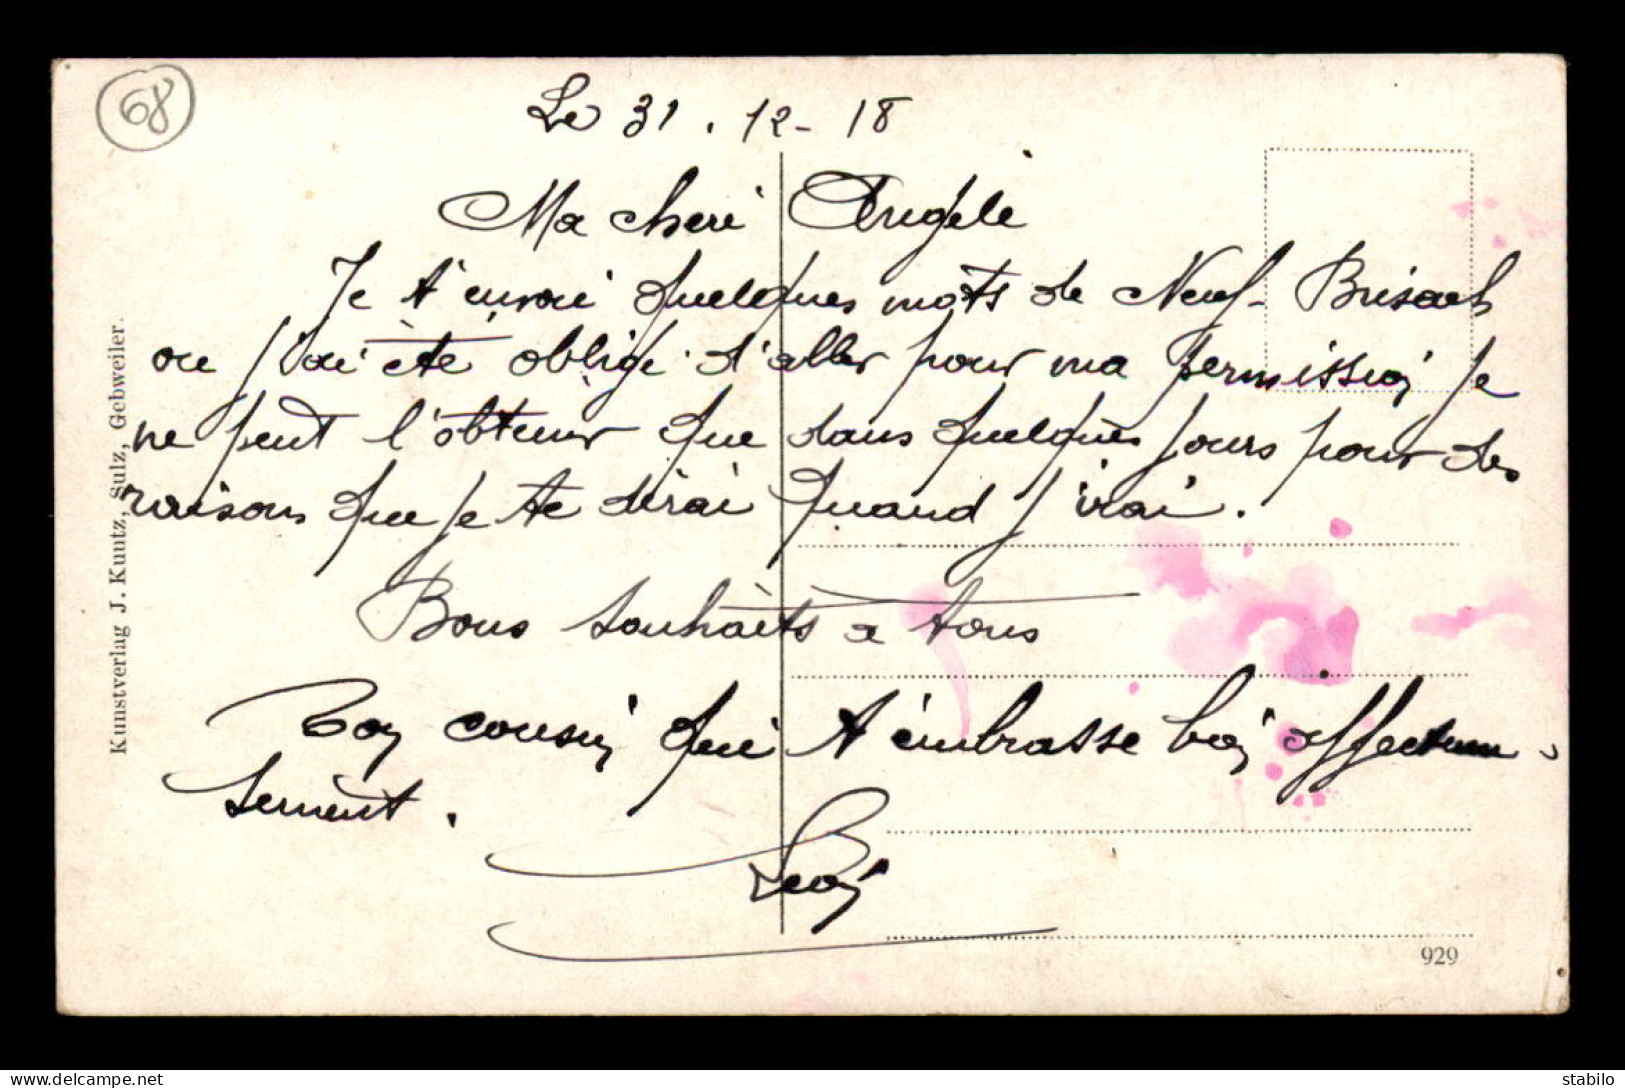 68
Le 31. 12 - 18
Ma cheri Angèle
Je t'envoi quelques mots de Neuf-Brisach
ou j'ai été obligé d'aller pour ma permission je
ne peut l'obtenir que dans quelques jours pour des
raisons que je te dirai quand j'irai.
Bons souhaits a tous
Ton cousin qui t'embrasse bien affectueu-
sement.
Léon
Kunstverlag J. Kuntz, Sulz, Gebweiler.
929
delcampe.net
stabilo